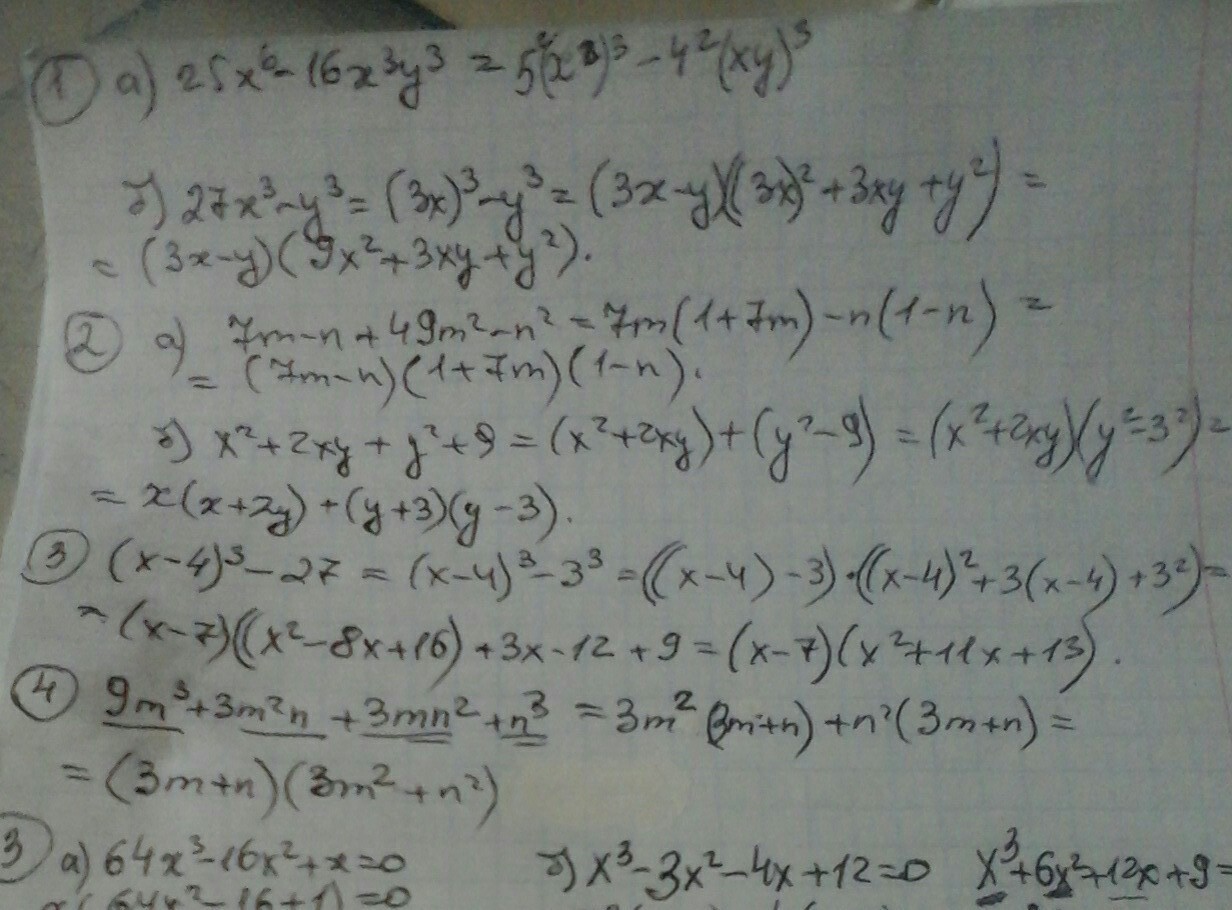 ① а) 25x⁶ - 16x³y³ = 5²(x²)³ - 4²(xy)³
б) 27x³ - y³ = (3x)³ - y³ = (3x - y)((3x)² + 3xy + y²) =
= (3x - y)(9x² + 3xy + y²).
② а) 7m - n + 49m² - n² = 7m(1 + 7m) - n(1 - n) =
= (7m - n)(1 + 7m)(1 - n).
б) x² + 2xy + y² + 9 = (x² + 2xy) + (y² - 9) = (x² + 2xy)(y² - 3²) =
= x(x + 2y) + (y + 3)(y - 3).
③ (x - 4)³ - 27 = (x - 4)³ - 3³ = ((x - 4) - 3)·((x - 4)² + 3(x - 4) + 3²) =
= (x - 7)((x² - 8x + 16) + 3x - 12 + 9 = (x - 7)(x² + 11x + 13).
④ 9m³ + 3m²n + 3mn² + n³ = 3m²(3m + n) + n²(3m + n) =
= (3m + n)(3m² + n²)
3 а) 64x³ - 16x² + x = 0 б) x³ - 3x² - 4x + 12 = 0 x³ + 6x² + 12x + 9 =
x(64x² - 16 + 1) = 0